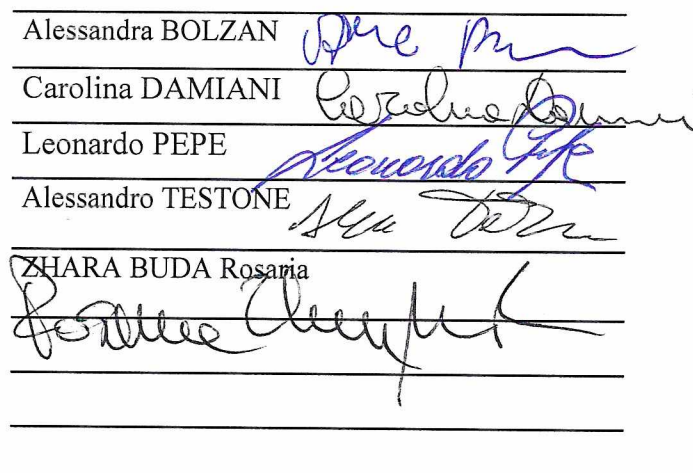 Alessandra BOLZAN
Carolina DAMIANI Carolina Damiani
Leonardo PEPE Leonardo Pepe
Alessandro TESTONE
ZHARA BUDA Rosaria